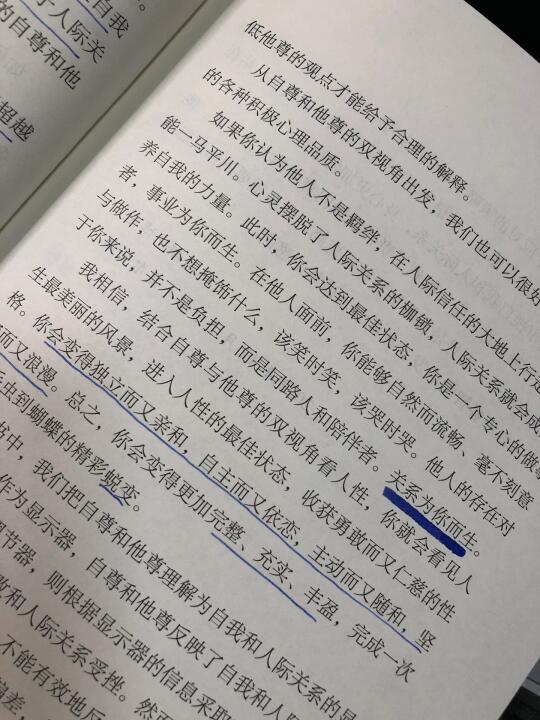 自我
于人际关
的自尊和他
超越
低他尊的观点才能给予合理的解释。
从自尊和他尊的双视角出发，我们也可以很好
的各种积极心理品质。
如果你认为他人不是羁绊，在人际信任的大地上行走
能一马平川。心灵摆脱了人际关系的枷锁，人际关系就会成
养自我的力量。此时，你会达到最佳状态，你是一个专心的做事
者，事业为你而生。在他人面前，你能够自然而流畅、毫不刻意
与做作，也不想掩饰什么，该笑时笑，该哭时哭。他人的存在对
于你来说，并不是负担，而是同路人和陪伴者。关系为你而生。
我相信，结合自尊与他尊的双视角看人性，你就会看见人
生最美丽的风景，进入人性的最佳状态，收获勇敢而又仁慈的性
格。你会变得独立而又亲和，自主而又依恋，主动而又随和，坚
而又浪漫。总之，你会变得更加完整、充实、丰盈，完成一次
虫到蝴蝶的精彩蜕变。
中，我们把自尊和他尊理解为自我和人际关系的显
作为显示器，自尊和他尊反映了自我和人际
节器，则根据显示器的信息采取
和人际关系受挫。然而
不能有效地反
偏差，